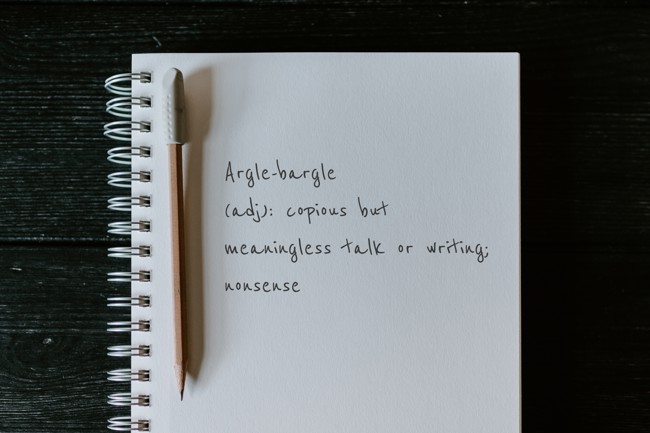 Argle-bargle
(adj): copious but
meaningless talk or writing;
nonsense